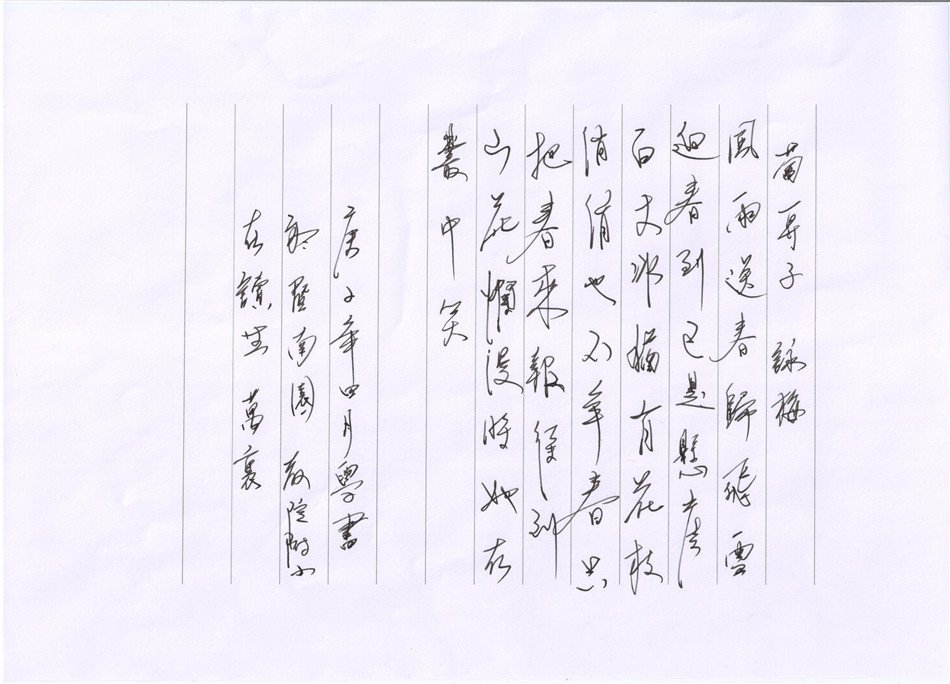 蔔算子 詠梅
風雨送春歸飛雪
迎春到已是懸崖
百丈冰猶有花枝
俏俏也不爭春只
把春來報待到
山花爛漫時她在
叢中笑
庚子年四月學書
南園教院附小
在讀生 萬裏